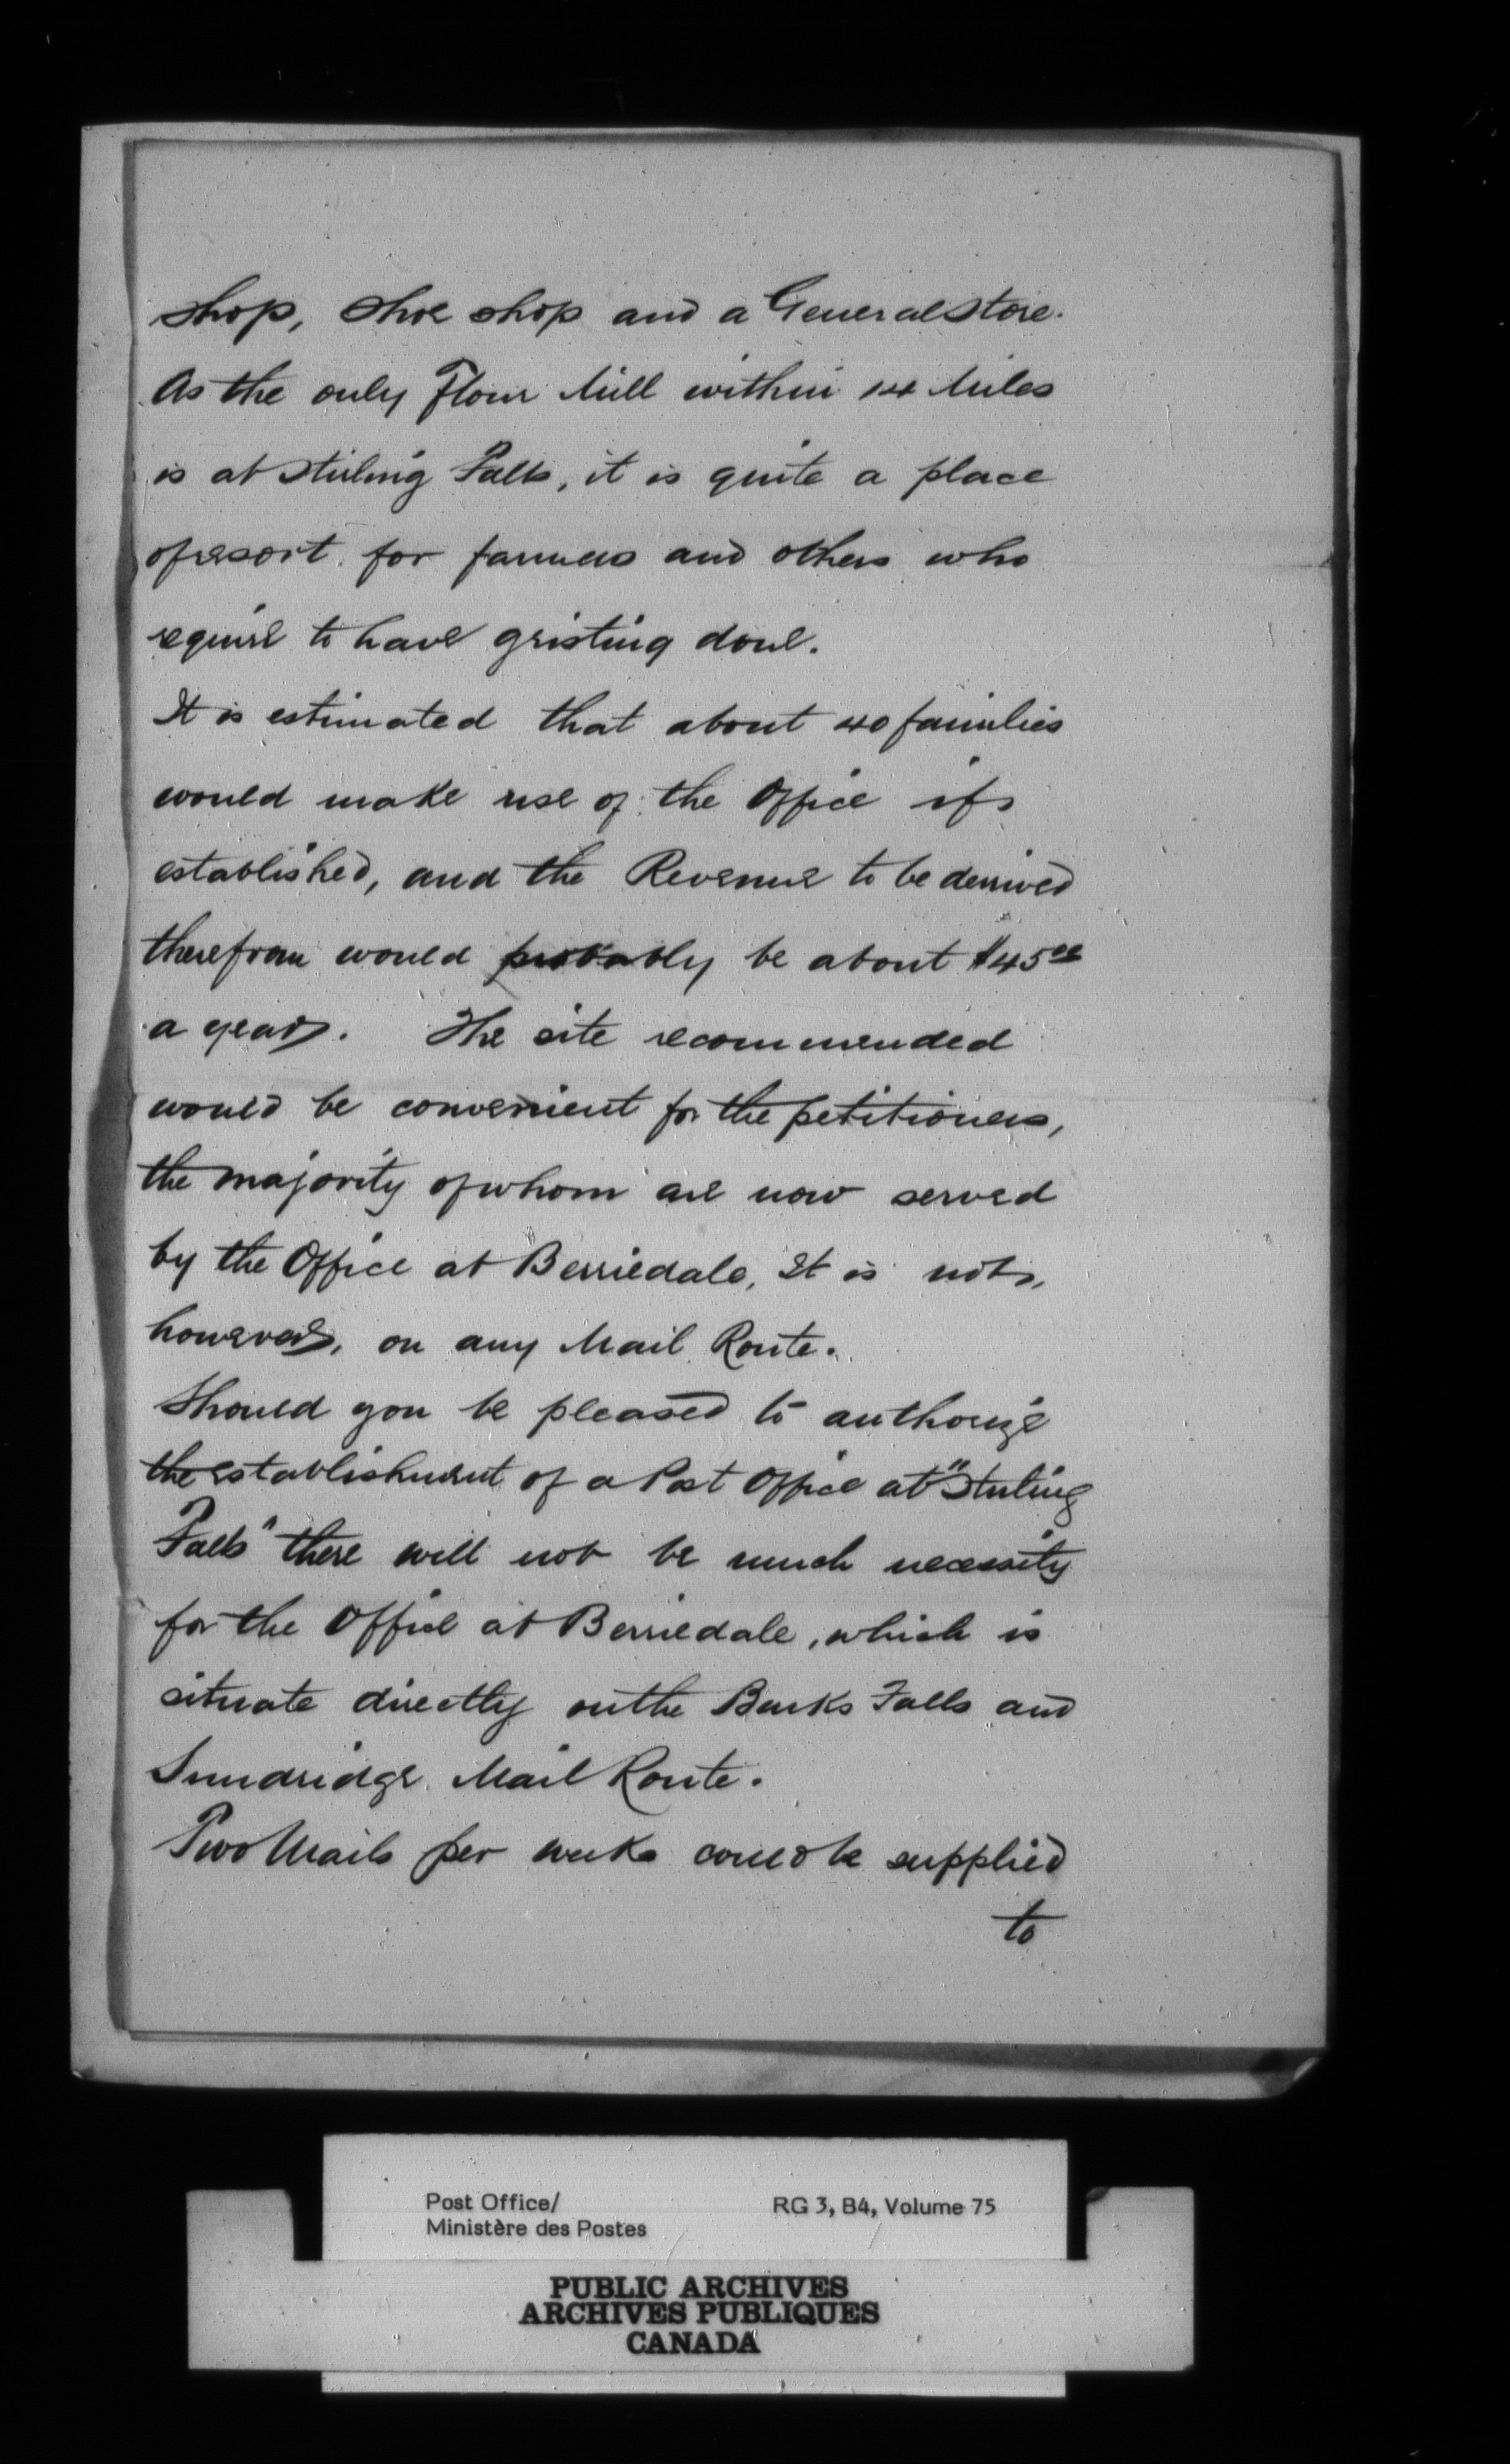 shop, shoe shop and a General Store.
As the only Flour Mill within 14 Miles
is at Stirling Falls, it is quite a place
of resort for farmers and others who
require to have gristing done.
It is estimated that about 40 families
would make use of the Office if
established, and the Revenue to be derived
therefrom would probably be about $45 00
a year. The site recommended
would be convenient for the petitioners,
the majority of whom are now served
by the Office at Berriedale. It is not,
however, on any Mail Route.
Should you be pleased to authorize
the establishment of a Post Office at "Stirling
Falls" there will not be much necessity
for the Office at Berriedale, which is
situate directly on the Burks Falls and
Sundridge Mail Route.
Two Mails per week could be supplied
to
Post Office/ RG 3, B4, Volume 75
Ministère des Postes
PUBLIC ARCHIVES
ARCHIVES PUBLIQUES
CANADA